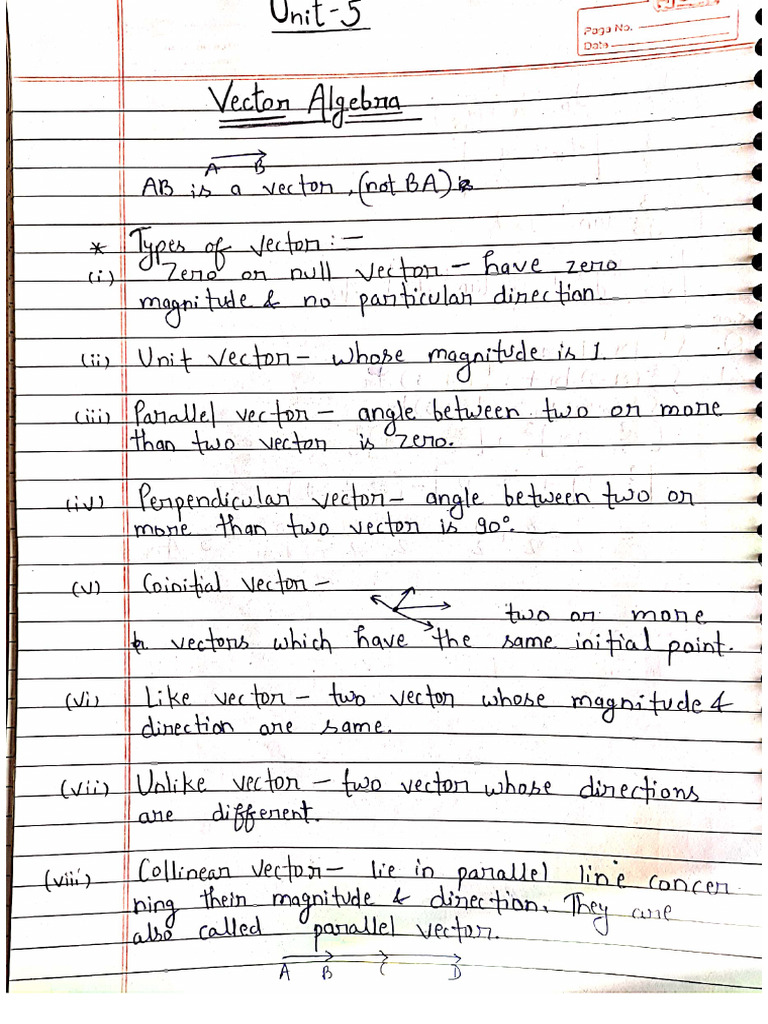 Unit-5
Page No.
Date
Vector Algebra
A B
AB is a vector, (not BA)
* Types of vector :-
(i) Zero or null vector - have zero
magnitude & no particular direction.
(ii) Unit vector - whose magnitude is 1.
(iii) Parallel vector - angle between two or more
than two vector is zero.
(iv) Perpendicular vector - angle between two or
more than two vector is 90°.
(v) Coinitial vector -
two or more
vectors which have the same initial point.
(vi) Like vector - two vector whose magnitude &
direction are same.
(vii) Unlike vector - two vector whose directions
are different.
(viii) Collinear vector - lie in parallel line concer
ning their magnitude & direction. They are
also called parallel vector.
A B C D